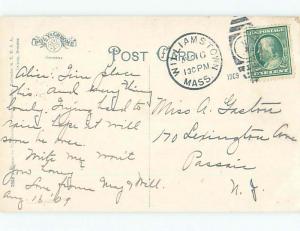 POST CARD
WILLIAMSTOWN
AUG 16
130 PM
MASS.
1909
ONE CENT
Alice: Fine place
this. and everything
lovely. Trying hard to
rain, hope it will
soon be over.
Write me won't
you
Love from May & Will.
Aug 16 '09
Miss A. Gaston
170 Lexington Ave
Passaic
N. J.